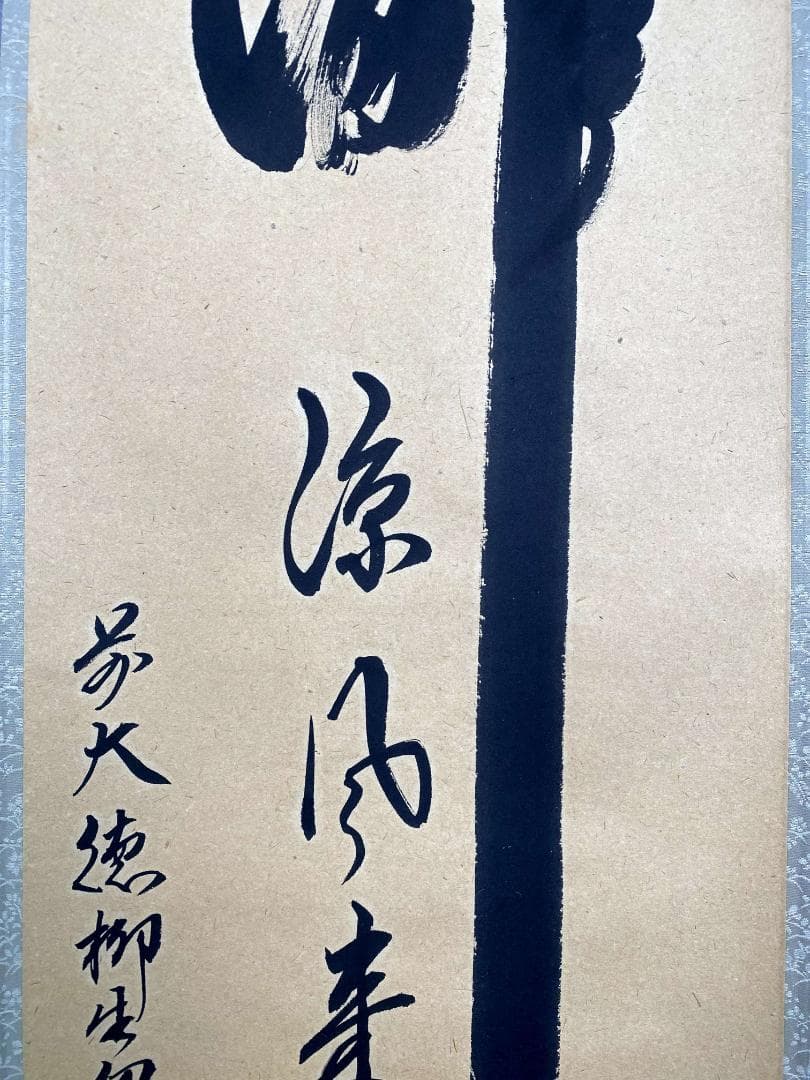 涼風来
前大徳柳生